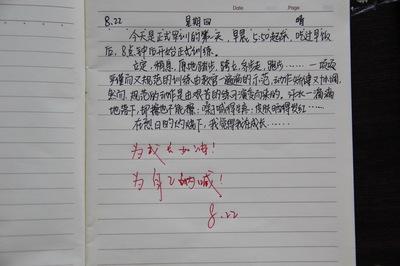 8.22 星期四 晴
今天是正式军训的第一天，早晨5:50起床，吃过早饭
后，8点钟后开始正式训练。
立定，稍息，原地踏步，跨立，齐步走，跑步……一项项
严谨而又规范的训练由教官一遍遍的示范，动作矫健又协调，
然而，规范的动作是由艰苦的练习演变而来的。汗水一滴滴
地落下，即擦也不能擦；嗓子喊得生疼，皮肤晒得发红……
在烈日的灼烧下，我觉得我在成长……
为成长加油！
为自己呐喊！
8.22